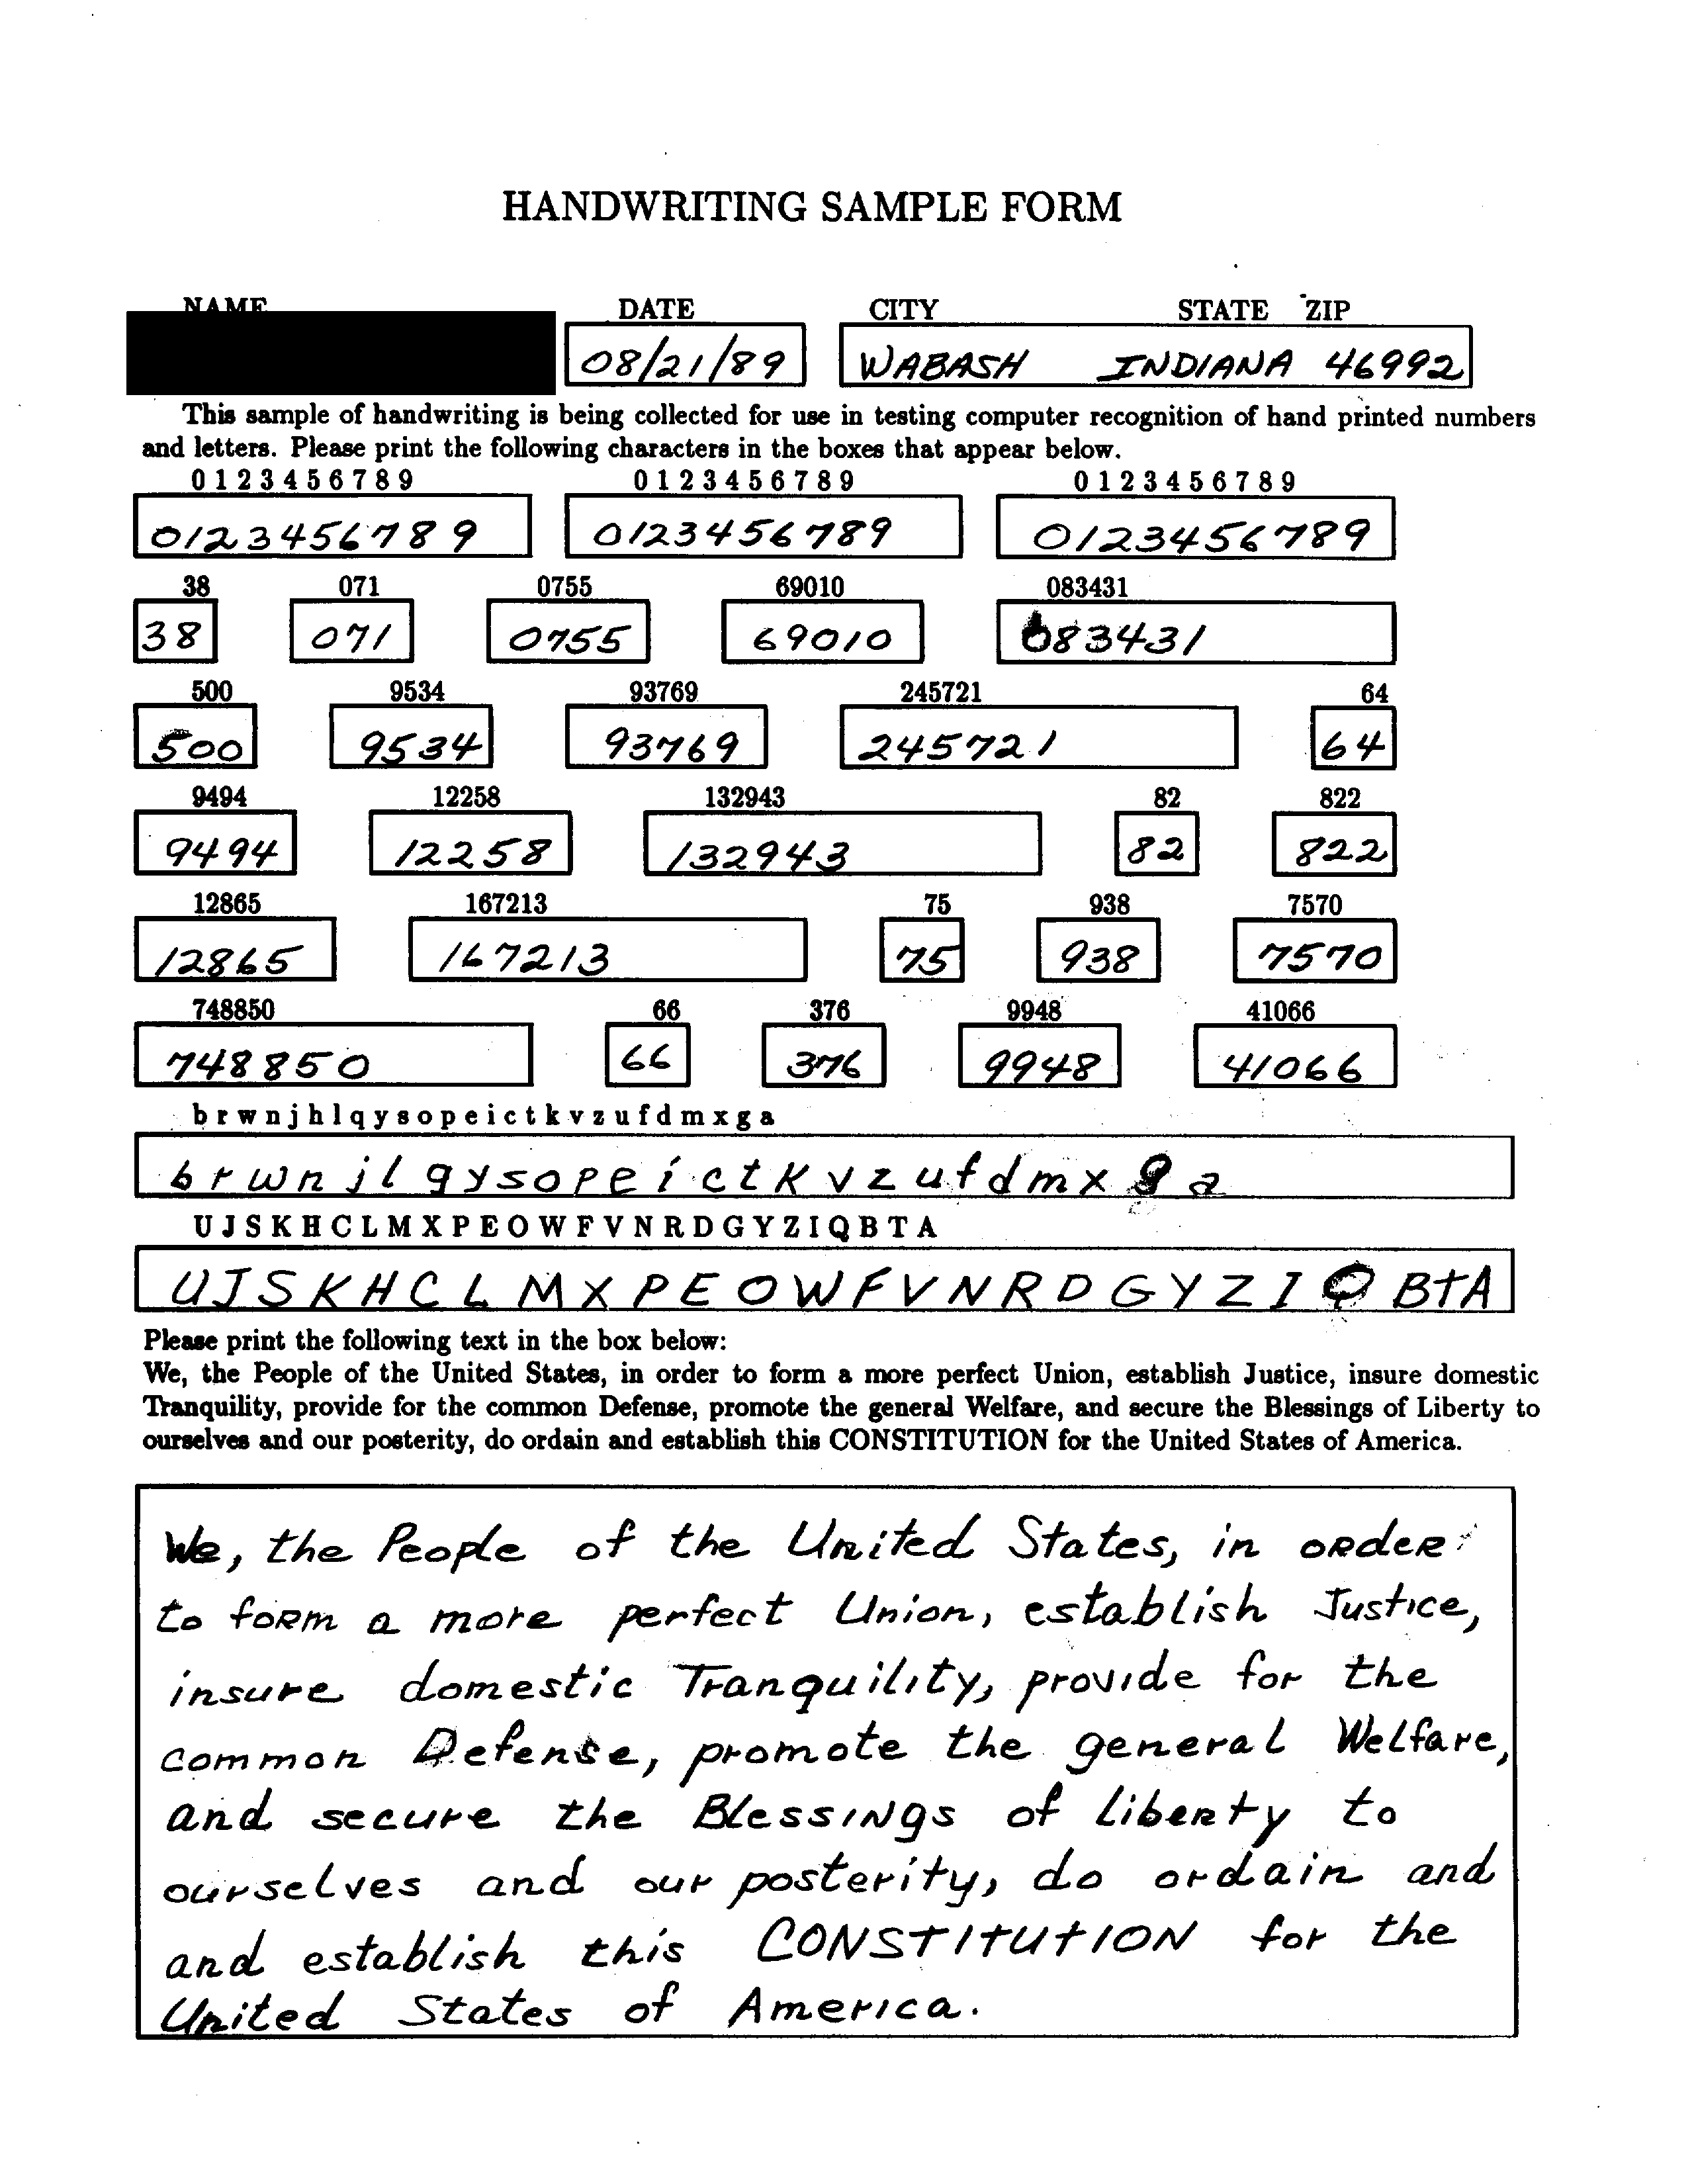 HANDWRITING SAMPLE FORM
NAME DATE CITY STATE ZIP
08/21/89 WABASH INDIANA 46992
This sample of handwriting is being collected for use in testing computer recognition of hand printed numbers
and letters. Please print the following characters in the boxes that appear below.
0 1 2 3 4 5 6 7 8 9 0 1 2 3 4 5 6 7 8 9 0 1 2 3 4 5 6 7 8 9
0123456789 0123456789 0123456789
38 071 0755 69010 083431
38 071 0755 69010 083431
500 9534 93769 245721 64
500 9534 93769 245721 64
9494 12258 132943 82 822
9494 12258 132943 82 822
12865 167213 75 938 7570
12865 167213 75 938 7570
748850 66 376 9948 41066
748850 66 376 9948 41066
b r w n j h l q y s o p e i c t k v z u f d m x g a
b r w n j l q y s o p e i c t k v z u f d m x g a
U J S K H C L M X P E O W F V N R D G Y Z I Q B T A
U J S K H C L M X P E O W F V N R D G Y Z I Q B t A
Please print the following text in the box below:
We, the People of the United States, in order to form a more perfect Union, establish Justice, insure domestic
Tranquility, provide for the common Defense, promote the general Welfare, and secure the Blessings of Liberty to
ourselves and our posterity, do ordain and establish this CONSTITUTION for the United States of America.
We, the People of the United States, in ordeR
to foRm a more perfect Union, establish Justice,
insure domestic Tranquility, provide for the
common Defense, promote the general Welfare,
and secure the BlessINgs of libeRty to
ourselves and our posterity, do ordain and
and establish this CONSTITUTION for the
United States of America.